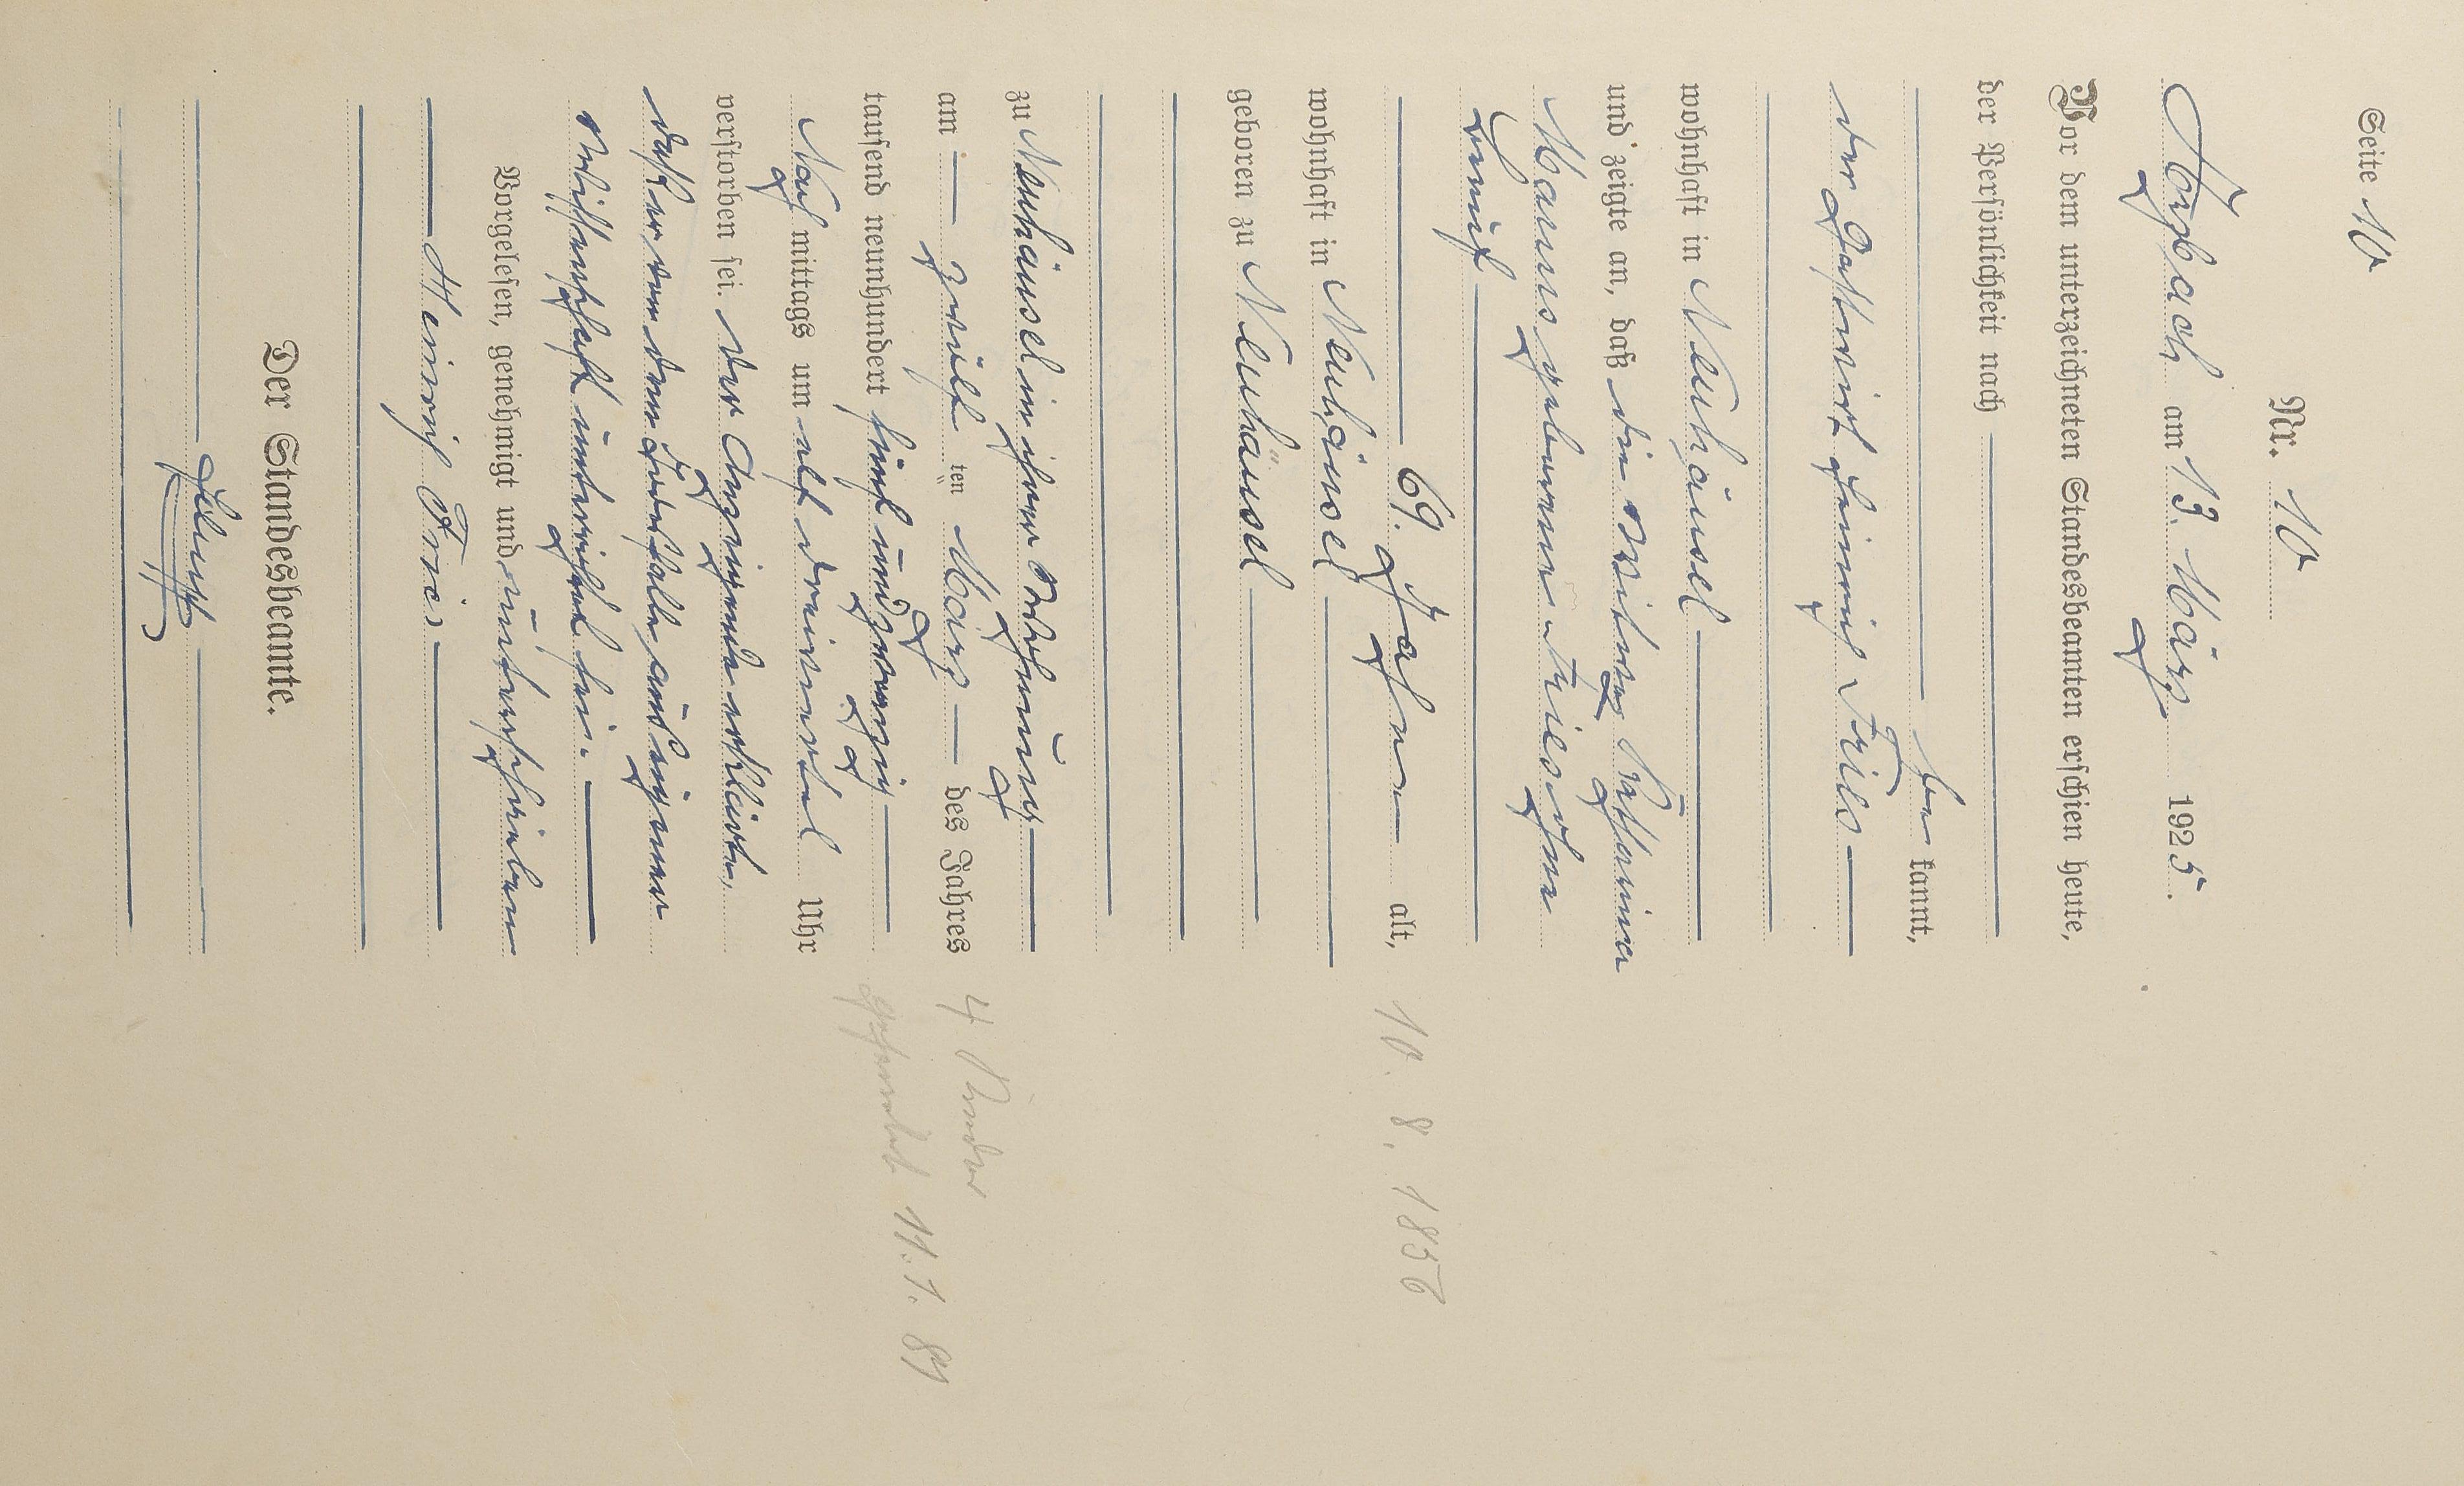 Seite 10
Nr. 10
am 13. März 1925.
Vor dem unterzeichneten Standesbeamten erschien heute,
der Persönlichkeit nach
be kannt,
der Gastwirt Heinrich Fries
wohnhaft in Neuhäusel
und zeigte an, daß die Witwe Katharina
Manns geborene Fries ohne
Beruf
69. Jahre alt,
10. 8. 1856
wohnhaft in Neuhäusel
geboren zu Neuhäusel
zu Neuhäusel in ihrer Wohnung
am zwölf ten März des Jahres
4 Kinder
tausend neunhundert fünf und zwanzig
geheiratet 11. 1. 81
Nach mittags um elf dreiviertel Uhr
verstorben sei. Der Anzeigende erklärte,
daß er von dem Todesfalle aus eigener
Wissenschaft unterrichtet sei.
Vorgelesen, genehmigt und unterschrieben
Heinrich Fries
Der Standesbeamte.